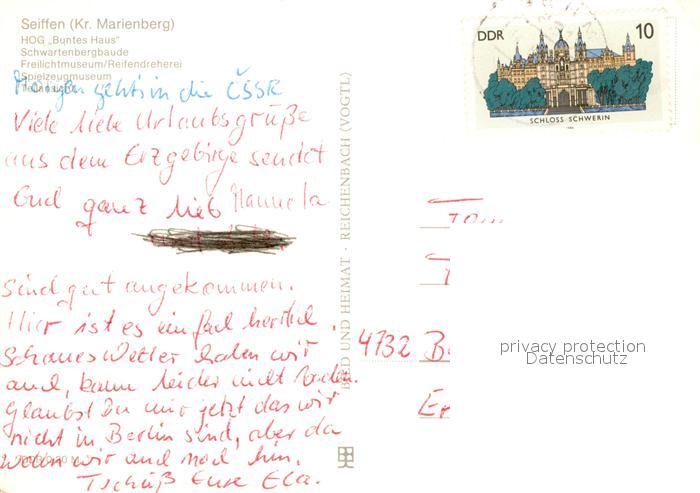 Seiffen (Kr. Marienberg)
HOG „Buntes Haus"
Schwartenbergbaude
Freilichtmuseum/Reifendreherei
Spielzeugmuseum
Teilansicht
Morgen gehts in die ČSSR
Viele liebe Urlaubsgrüße
aus dem Erzgebirge sendet
Eud ganz lieb Manuela
Sind gut angekommen.
Hier ist es einfach herrlich.
Schönes Wetter haben wir
auch, kann leider nicht baden.
Glaubst Du mir jetzt das wir
nicht in Berlin sind, aber da
wollen wir auch noch hin.
Tschüß Eure Ela.
BILD UND HEIMAT · REICHENBACH (VOGTL)
DDR 10
SCHLOSS SCHWERIN
1986
4732 B
privacy protection
Datenschutz